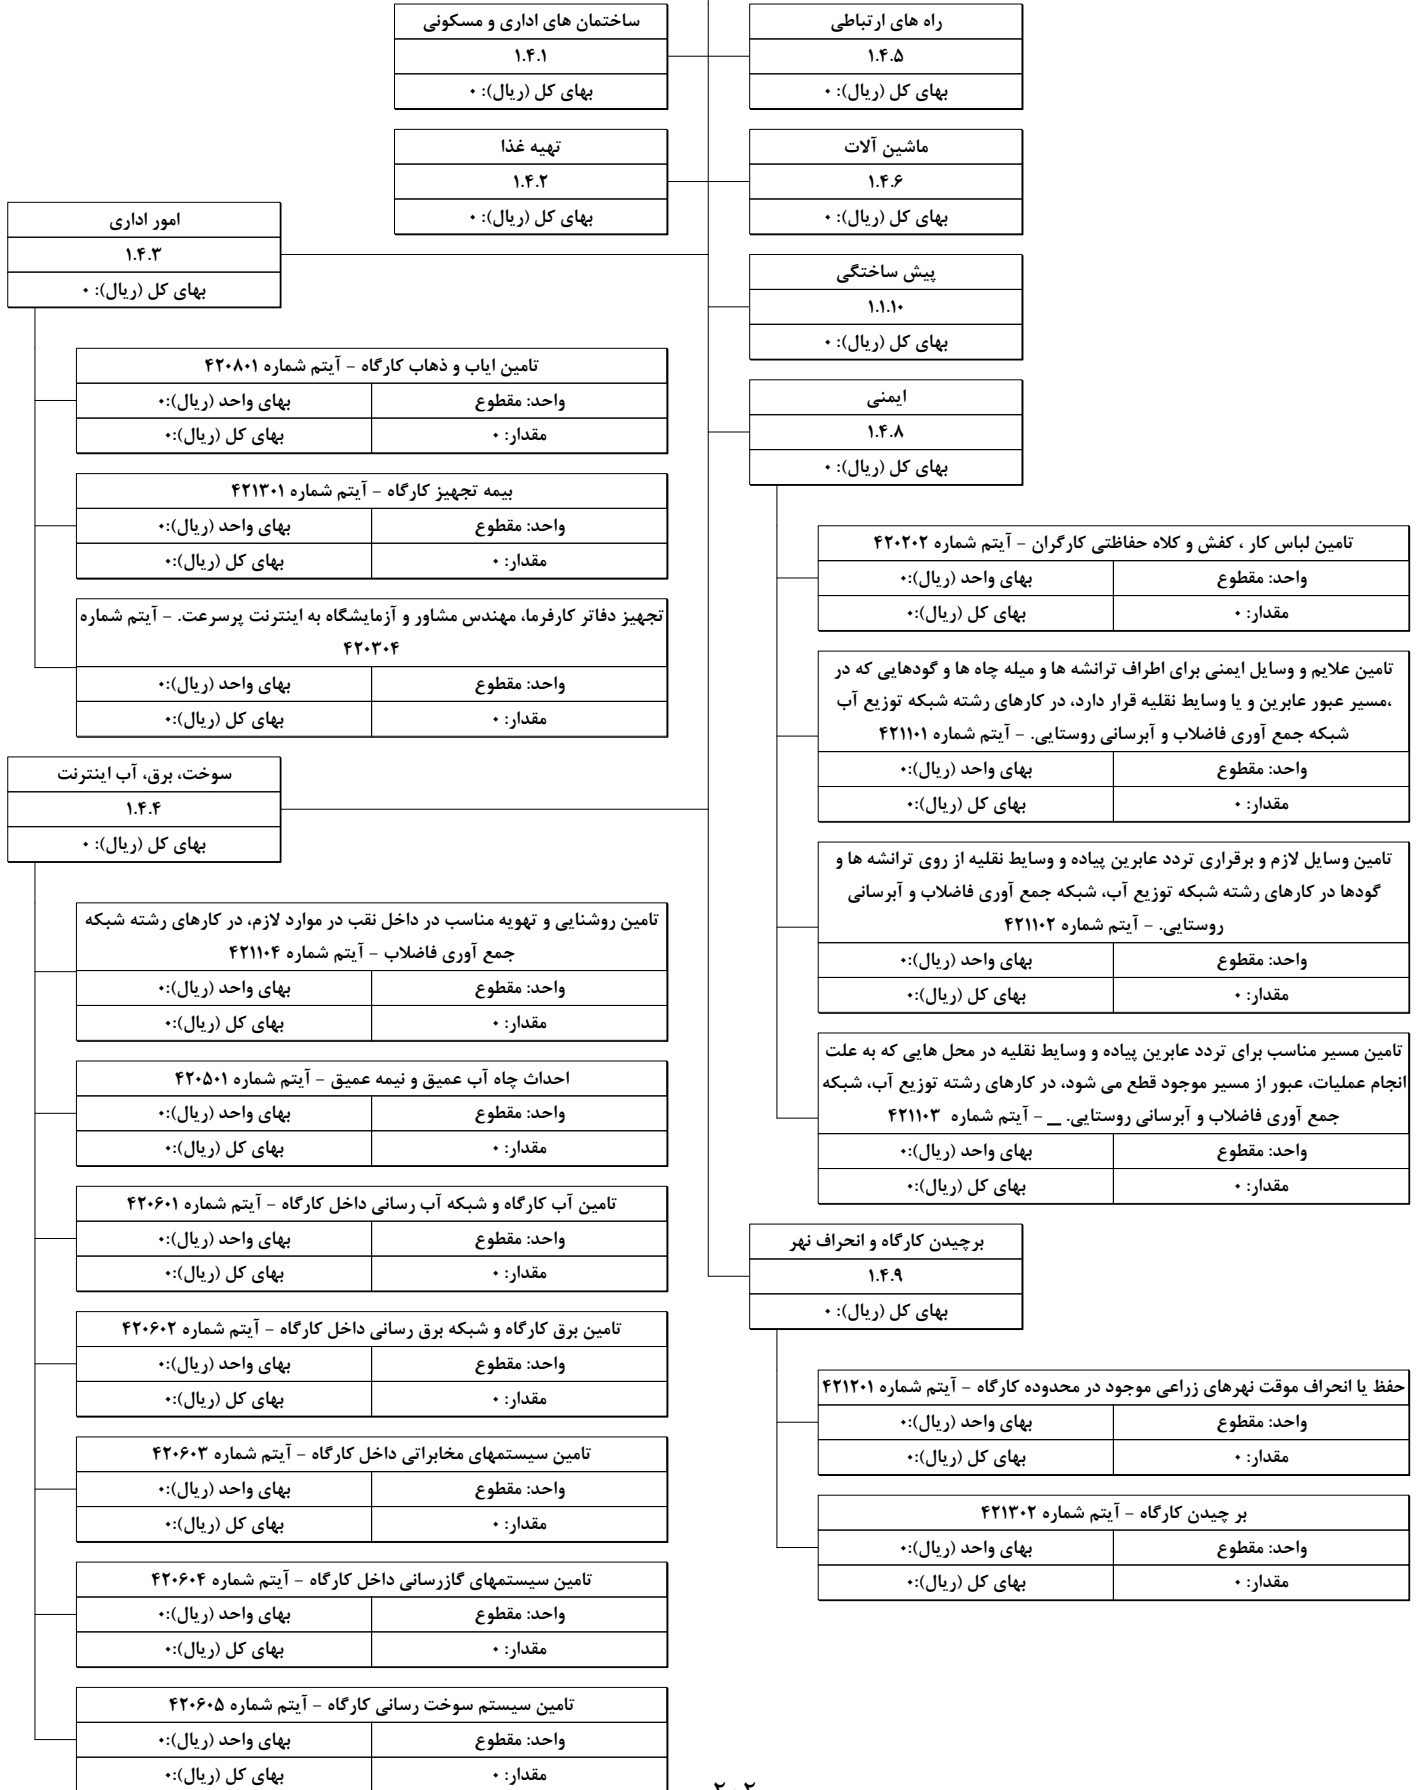 ساختمان های اداری و مسکونی
۱.۴.۱
بهای کل (ریال): ۰
راه های ارتباطی
۱.۴.۵
بهای کل (ریال): ۰
تهیه غذا
۱.۴.۲
بهای کل (ریال): ۰
ماشین آلات
۱.۴.۶
بهای کل (ریال): ۰
امور اداری
۱.۴.۳
بهای کل (ریال): ۰
تامین ایاب و ذهاب کارگاه - آیتم شماره ۴۲۰۸۰۱
واحد: مقطوع
بهای واحد (ریال):۰
مقدار: ۰
بهای کل (ریال):۰
بیمه تجهیز کارگاه - آیتم شماره ۴۲۱۳۰۱
واحد: مقطوع
بهای واحد (ریال):۰
مقدار: ۰
بهای کل (ریال):۰
تجهیز دفاتر کارفرما، مهندس مشاور و آزمایشگاه به اینترنت پرسرعت. - آیتم شماره
۴۲۰۳۰۴
واحد: مقطوع
بهای واحد (ریال):۰
مقدار: ۰
بهای کل (ریال):۰
سوخت، برق، آب اینترنت
۱.۴.۴
بهای کل (ریال): ۰
تامین روشنایی و تهویه مناسب در داخل نقب در موارد لازم، در کارهای رشته شبکه
جمع آوری فاضلاب - آیتم شماره ۴۲۱۱۰۴
واحد: مقطوع
بهای واحد (ریال):۰
مقدار: ۰
بهای کل (ریال):۰
احداث چاه آب عمیق و نیمه عمیق - آیتم شماره ۴۲۰۵۰۱
واحد: مقطوع
بهای واحد (ریال):۰
مقدار: ۰
بهای کل (ریال):۰
تامین آب کارگاه و شبکه آب رسانی داخل کارگاه - آیتم شماره ۴۲۰۶۰۱
واحد: مقطوع
بهای واحد (ریال):۰
مقدار: ۰
بهای کل (ریال):۰
تامین برق کارگاه و شبکه برق رسانی داخل کارگاه - آیتم شماره ۴۲۰۶۰۲
واحد: مقطوع
بهای واحد (ریال):۰
مقدار: ۰
بهای کل (ریال):۰
تامین سیستمهای مخابراتی داخل کارگاه - آیتم شماره ۴۲۰۶۰۳
واحد: مقطوع
بهای واحد (ریال):۰
مقدار: ۰
بهای کل (ریال):۰
تامین سیستمهای گازرسانی داخل کارگاه - آیتم شماره ۴۲۰۶۰۴
واحد: مقطوع
بهای واحد (ریال):۰
مقدار: ۰
بهای کل (ریال):۰
تامین سیستم سوخت رسانی کارگاه - آیتم شماره ۴۲۰۶۰۵
واحد: مقطوع
بهای واحد (ریال):۰
مقدار: ۰
بهای کل (ریال):۰
پیش ساختگی
۱.۱.۱۰
بهای کل (ریال): ۰
ایمنی
۱.۴.۸
بهای کل (ریال): ۰
تامین لباس کار ، کفش و کلاه حفاظتی کارگران - آیتم شماره ۴۲۰۲۰۲
واحد: مقطوع
بهای واحد (ریال):۰
مقدار: ۰
بهای کل (ریال):۰
تامین علایم و وسایل ایمنی برای اطراف ترانشه ها و میله چاه ها و گودهایی که در
،مسیر عبور عابرین و یا وسایط نقلیه قرار دارد، در کارهای رشته شبکه توزیع آب
شبکه جمع آوری فاضلاب و آبرسانی روستایی. - آیتم شماره ۴۲۱۱۰۱
واحد: مقطوع
بهای واحد (ریال):۰
مقدار: ۰
بهای کل (ریال):۰
تامین وسایل لازم و برقراری تردد عابرین پیاده و وسایط نقلیه از روی ترانشه ها و
گودها در کارهای رشته شبکه توزیع آب، شبکه جمع آوری فاضلاب و آبرسانی
روستایی. - آیتم شماره ۴۲۱۱۰۲
واحد: مقطوع
بهای واحد (ریال):۰
مقدار: ۰
بهای کل (ریال):۰
تامین مسیر مناسب برای تردد عابرین پیاده و وسایط نقلیه در محل هایی که به علت
انجام عملیات، عبور از مسیر موجود قطع می شود، در کارهای رشته توزیع آب، شبکه
جمع آوری فاضلاب و آبرسانی روستایی. _ - آیتم شماره ۴۲۱۱۰۳
واحد: مقطوع
بهای واحد (ریال):۰
مقدار: ۰
بهای کل (ریال):۰
برچیدن کارگاه و انحراف نهر
۱.۴.۹
بهای کل (ریال): ۰
حفظ یا انحراف موقت نهرهای زراعی موجود در محدوده کارگاه - آیتم شماره ۴۲۱۲۰۱
واحد: مقطوع
بهای واحد (ریال):۰
مقدار: ۰
بهای کل (ریال):۰
بر چیدن کارگاه - آیتم شماره ۴۲۱۳۰۲
واحد: مقطوع
بهای واحد (ریال):۰
مقدار: ۰
بهای کل (ریال):۰